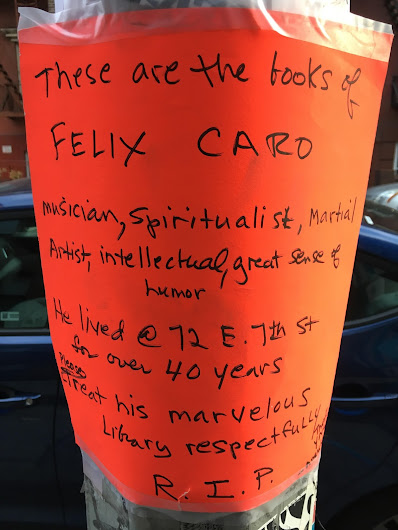 These are the books of
FELIX CARO
musician, Spiritualist, Martial
Artist, intellectual, great sense of
humor
He lived @ 72 E. 7th St
for over 40 years
Please
treat his marvelous
Library respectfully
R. I. P.